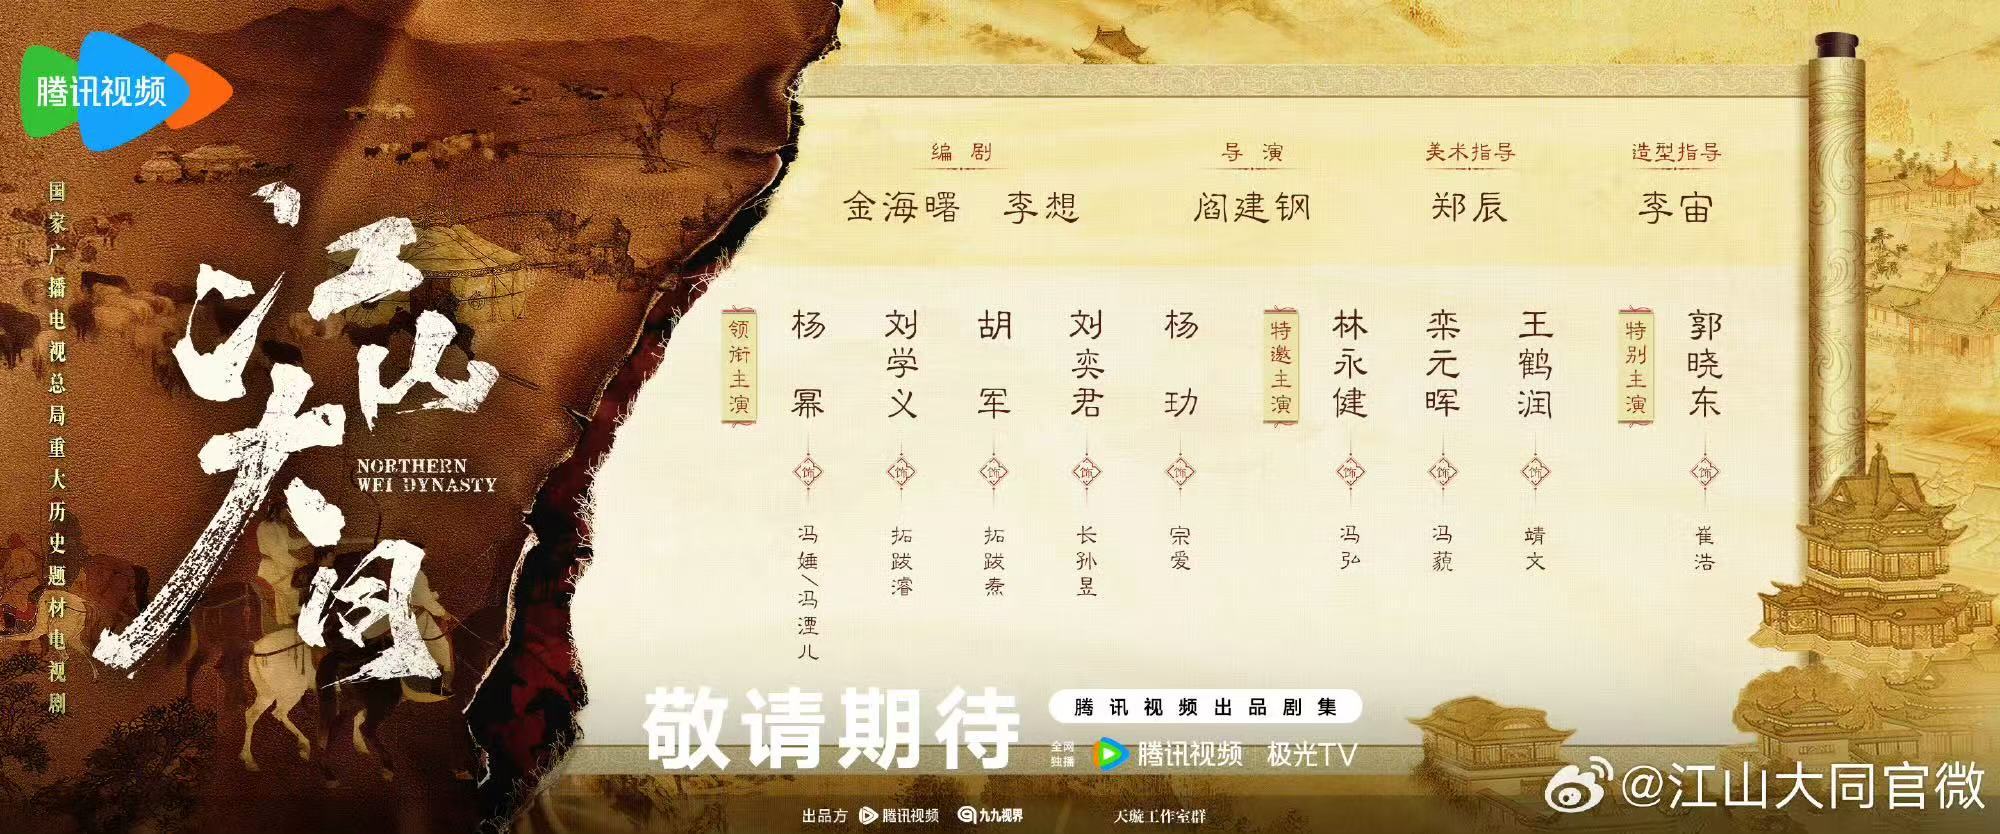 腾讯视频
国家广播电视总局重大历史题材电视剧
江山大同
NORTHERN
WEI DYNASTY
编剧
金海曙 李想
导演
阎建钢
美术指导
郑辰
造型指导
李宙
领衔主演
杨幂
饰
冯娷/冯湮儿
刘学义
饰
拓跋濬
胡军
饰
拓跋焘
刘奕君
饰
长孙昱
杨玏
饰
宗爱
特邀主演
林永健
饰
冯弘
栾元晖
饰
冯藐
王鹤润
饰
靖文
特别主演
郭晓东
饰
崔浩
敬请期待
腾讯视频出品剧集
全网独播 腾讯视频 极光TV
出品方 腾讯视频 九九视界 天璇工作室群
@江山大同官微